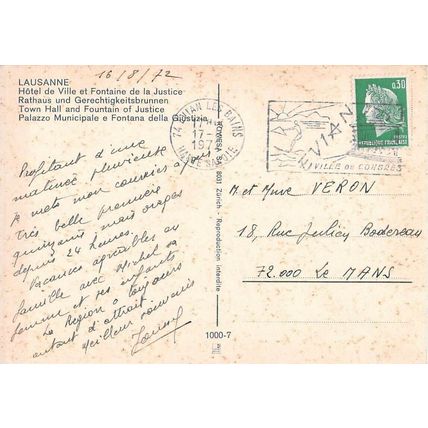 LAUSANNE
Hôtel de Ville et Fontaine de la Justice
Rathaus und Gerechtigkeitsbrunnen
Town Hall and Fountain of Justice
Palazzo Municipale e Fontana della Giustizia
16/8/72
Profitant d'une
matinée pluvieuse
je mets mon courrier à jour
très belle première
quinzaine mais orages
depuis 24 heures.
Vacances agréables en
famille avec Michel sa
femme et ses enfants
La Région a toujours
autant d'attrait.
Meilleur souvenir
ROWESA SA 8031 Zürich - Reproduction interdite
1000-7
74 LES BAINS
17-8
197
HAUTE SAVOIE
EVIAN
VILLE de CONGRÈS
0,30
REPUBLIQUE FRANÇAISE
Et Mme VERON
18, Rue Julien Bodereau
72.000 Le MANS